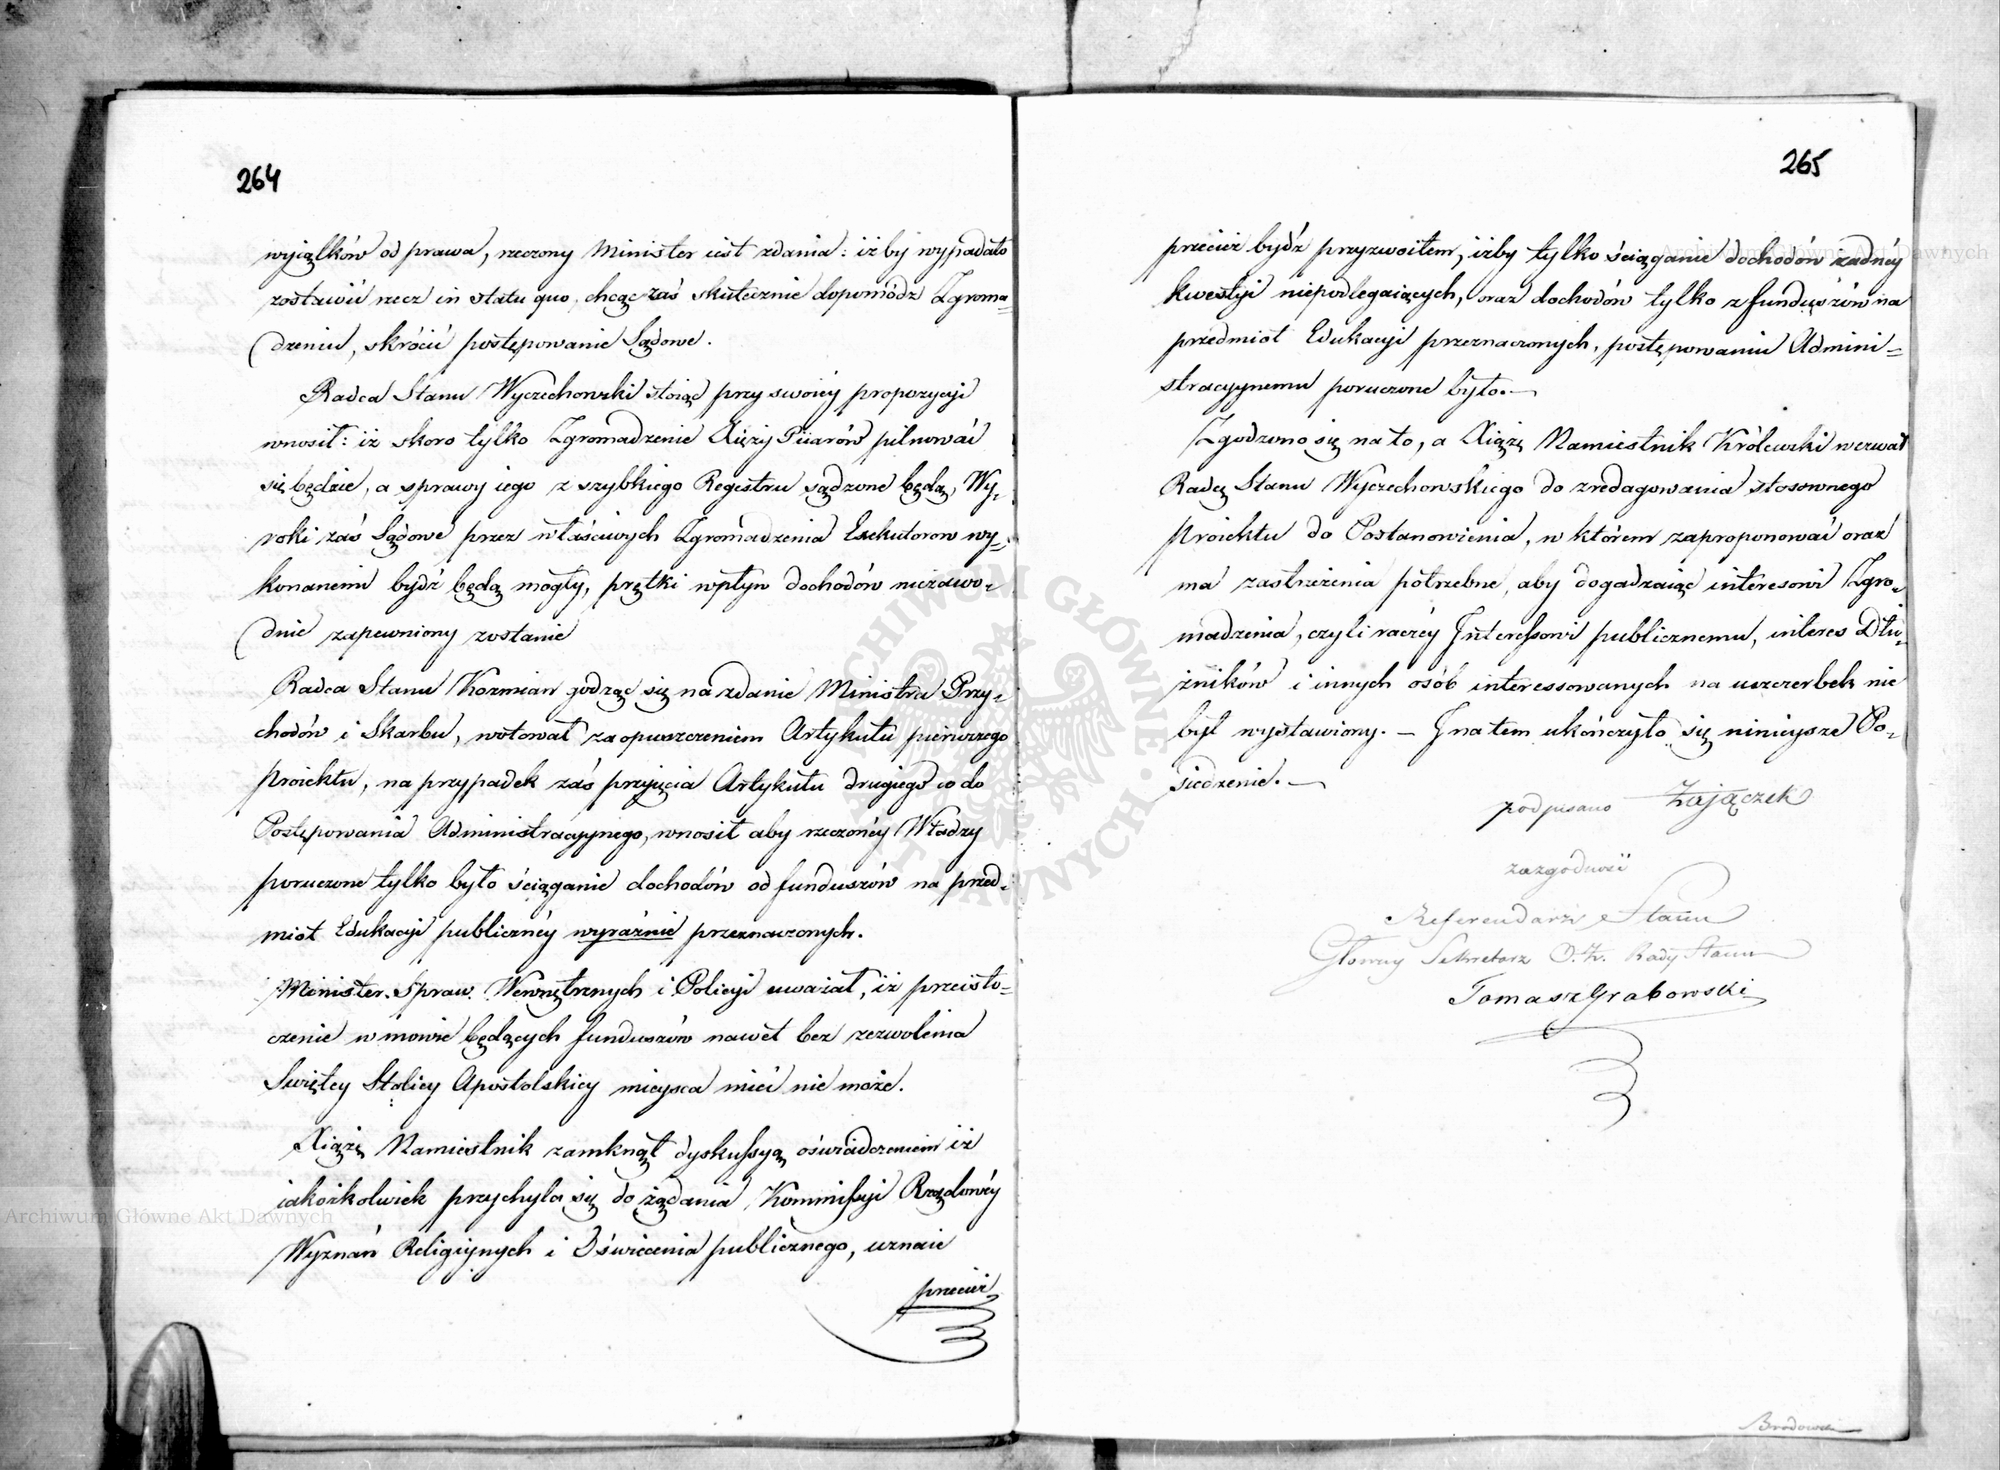 264
wyiątków od prawa, rzeczony Minister iest zdania: iżby wypadało
zostawić rzecz in statu quo, chcąc zaś skutecznie dopomódz Zgroma=
dzeniu, skrócić postępowanie Sądowe.
Radca Stanu Wyczechowski stoiąc przy swoiéy propozycyi
wnosił: iż skoro tylko Zgromadzenie Xięży Piiarów pilnować
się będzie, a sprawy iego z szybkiego Regestru sądzone będą, Wy=
roki zaś Sądowe przez właściwych Zgromadzenia Exekutorow wy=
konanemi bydź będą mogły, prętki wpływ dochodów niezawo=
dnie zapewniony zostanie
Radca Stanu Kozmian godząc się na zdanie Ministra Przy=
chodów i Skarbu, wotował za opuszczeniem Artykułu pierwszego
Proiektu, na przypadek zaś przyięcia Artykułu drugiego co do
Postępowania Administracyynego, wnosił aby rzeczonéy Władzy
poruczone tylko było ściąganie dochodów od funduszów na przed=
miot Edukacyi publicznéy wyraźnie przeznaczonych.
Minister Spraw Wewnętrznych i Policyi uważał, iż przeisto=
czenie w mowie będących funduszów nawet bez zezwolenia
Swiętey Stolicy Apostolskiey mieysca mieć nie może.
Xiążę Namiestnik zamknął dyskussyą oświadczeniem iż
iakożkolwiek przychyla się do żądania Kommissyi Rządowéy
Wyznań Religiynych i Oświecenia publicznego, uznaie
przecież
265
przecież bydź przyzwoitem, iżby tylko ściąganie dochodów żadnéy
kwestyi niepodlegaiących, oraz dochodów tylko z funduszów na
przedmiot Edukacyi przeznaczonych, postępowaniu Admini=
stracyynemu poruczone było.—
Zgodzono się na to, a Xiążę Namiestnik Królewski wezwał
Radcę Stanu Wyczechowskiego do zredagowania stosownego
Proiektu do Postanowienia, w którem zaproponować oraz
ma zastrzeżenia potrzebne, aby dogadzaiąc interesowi Zgro=
madzenia, czyli raczéy Interessowi publicznemu, interes Dłu=
żników i innych osób interessowanych na uszczerbek nie
był wystawiony. — I na tem ukończyło się ninieysze Po=
siedzenie.—
podpisano Zajączek
za zgodność
Referendarz Stanu
Główny Sekretarz Rady Stanu
Tomasz Grabowski
Brodowski
Archiwum Główne Akt Dawnych
Archiwum Główne Akt Dawnych
ARCHIWUM GŁÓWNE AKT DAWNYCH